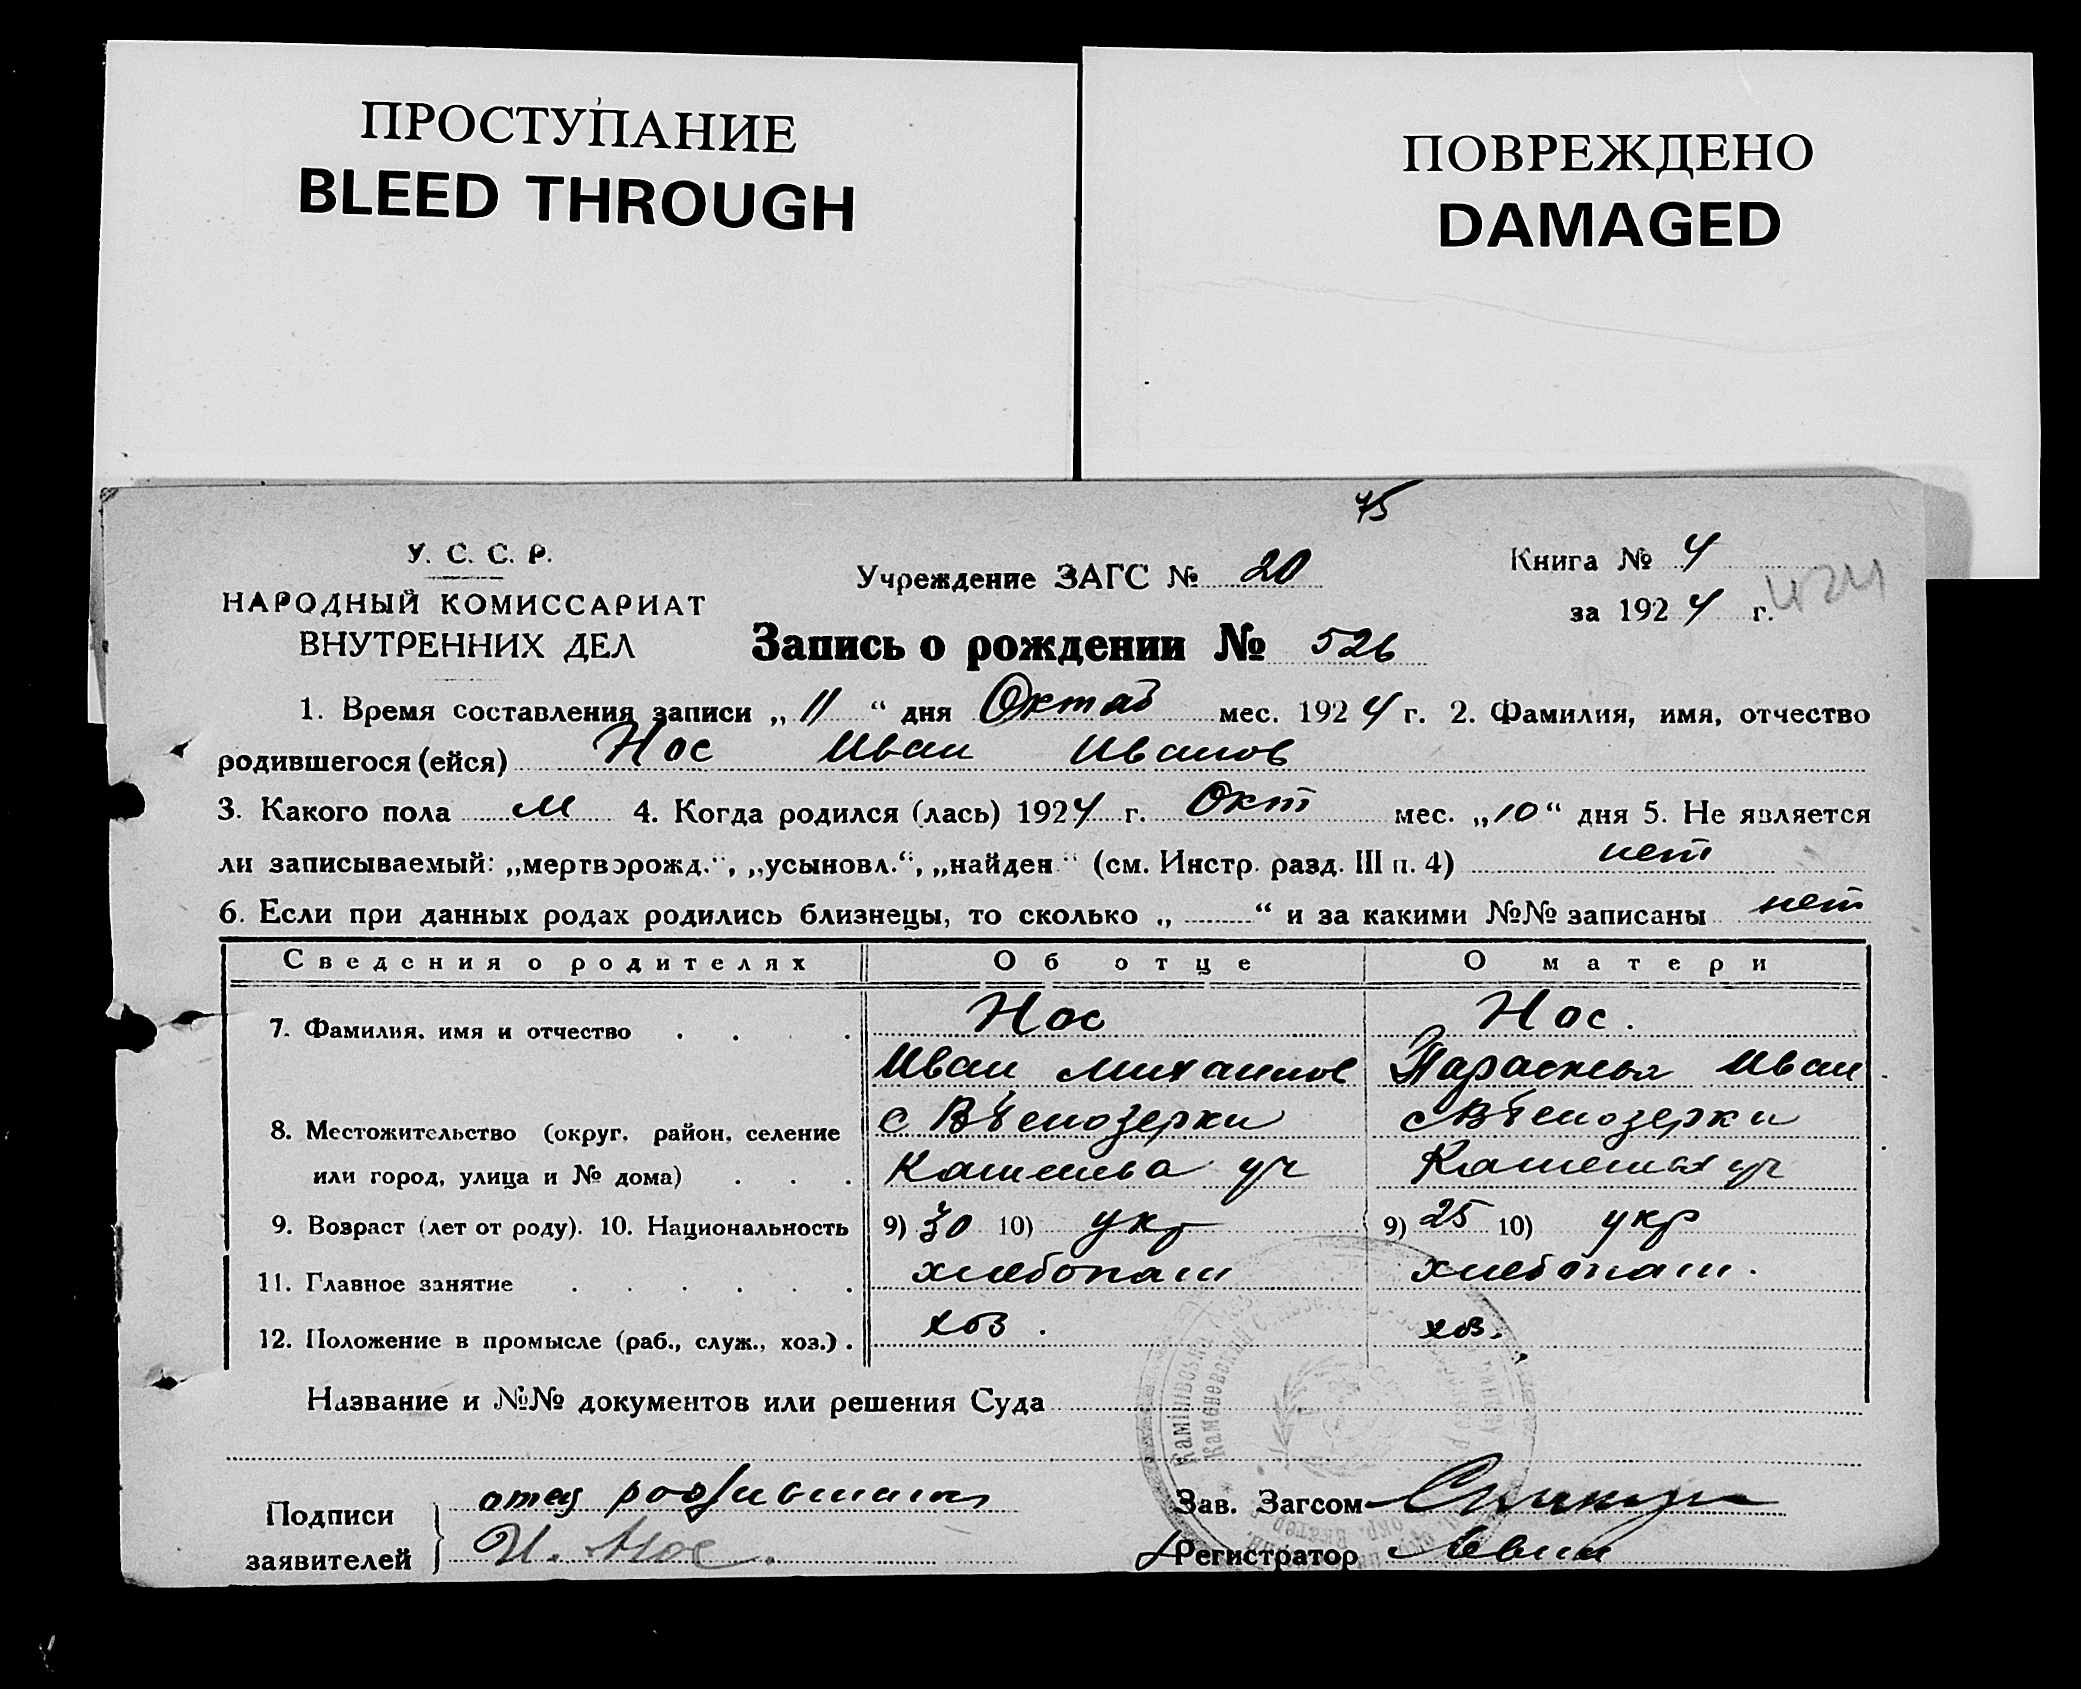 ПРОСТУПАНИЕ
BLEED THROUGH
ПОВРЕЖДЕНО
DAMAGED
75
У. С. С. Р.
НАРОДНЫЙ КОМИССАРИАТ
ВНУТРЕННИХ ДЕЛ
Учреждение ЗАГС № 20
Книга № 4
за 1924 г.
424
Запись о рождении № 526
1. Время составления записи „11“ дня Октяб мес. 1924 г. 2. Фамилия, имя, отчество
родившегося (ейся) Нос Иван Иванов
3. Какого пола м 4. Когда родился (лась) 1924 г. Окт мес. „10“ дня 5. Не является
ли записываемый: „мертворожд.“, „усыновл.“, „найден“ (см. Инстр. разд. III п. 4) нет
6. Если при данных родах родились близнецы, то сколько „ “ и за какими №№ записаны нет
Сведения о родителях Об отце О матери
7. Фамилия, имя и отчество . . . . Нос Нос.
Иван Михаилов Парасквья Иван
8. Местожительство (округ, район, селение с Вʼелозерки с Вʼелозерки
или город, улица и № дома) . . . уч уч
9. Возраст (лет от роду). 10. Национальность 9) 30 10) укр 9) 25 10) укр
11. Главное занятие . . . . . . хлебопаш хлебопаш.
12. Положение в промысле (раб., служ., хоз.) . хоз. хоз.
Название и №№ документов или решения Суда
Подписи
заявителей
отец
И. Нос.
Зав. Загсом
Регистратор